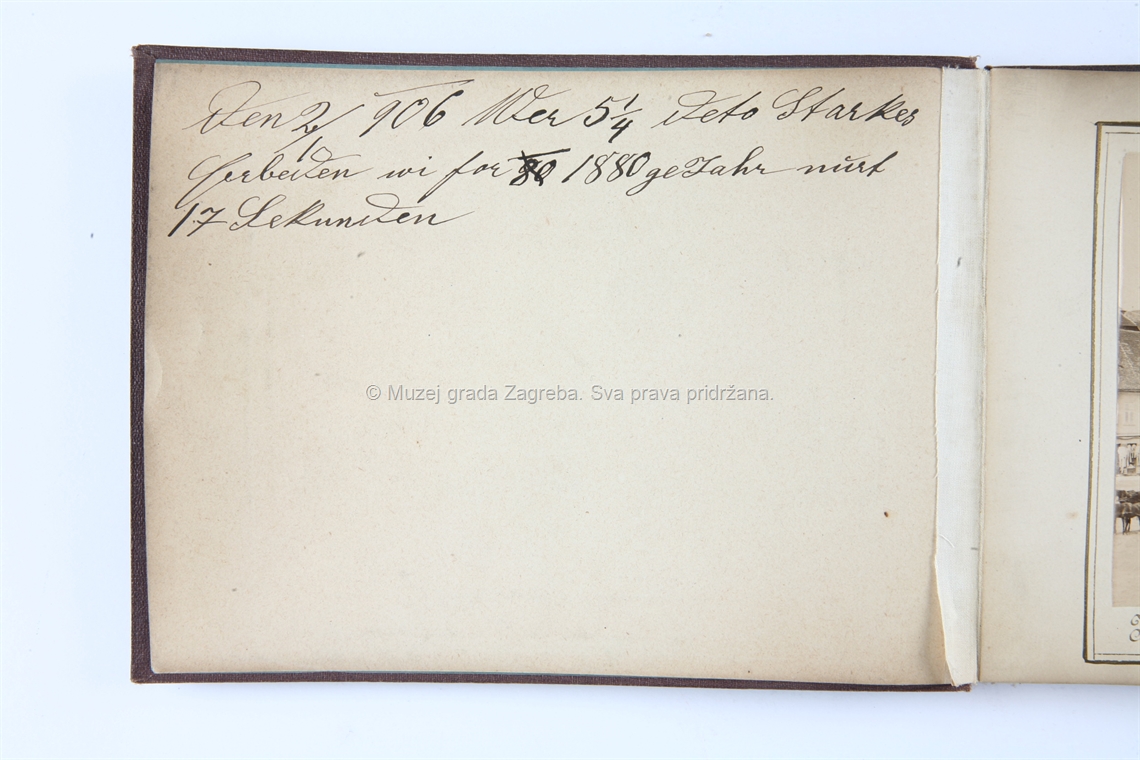 Den 2/1 906 Wer 5 1/4 deto Starkes
Gerbeden wi for 80 1880 ge Jahr nurt
17 Sekunden
© Muzej grada Zagreba. Sva prava pridržana.